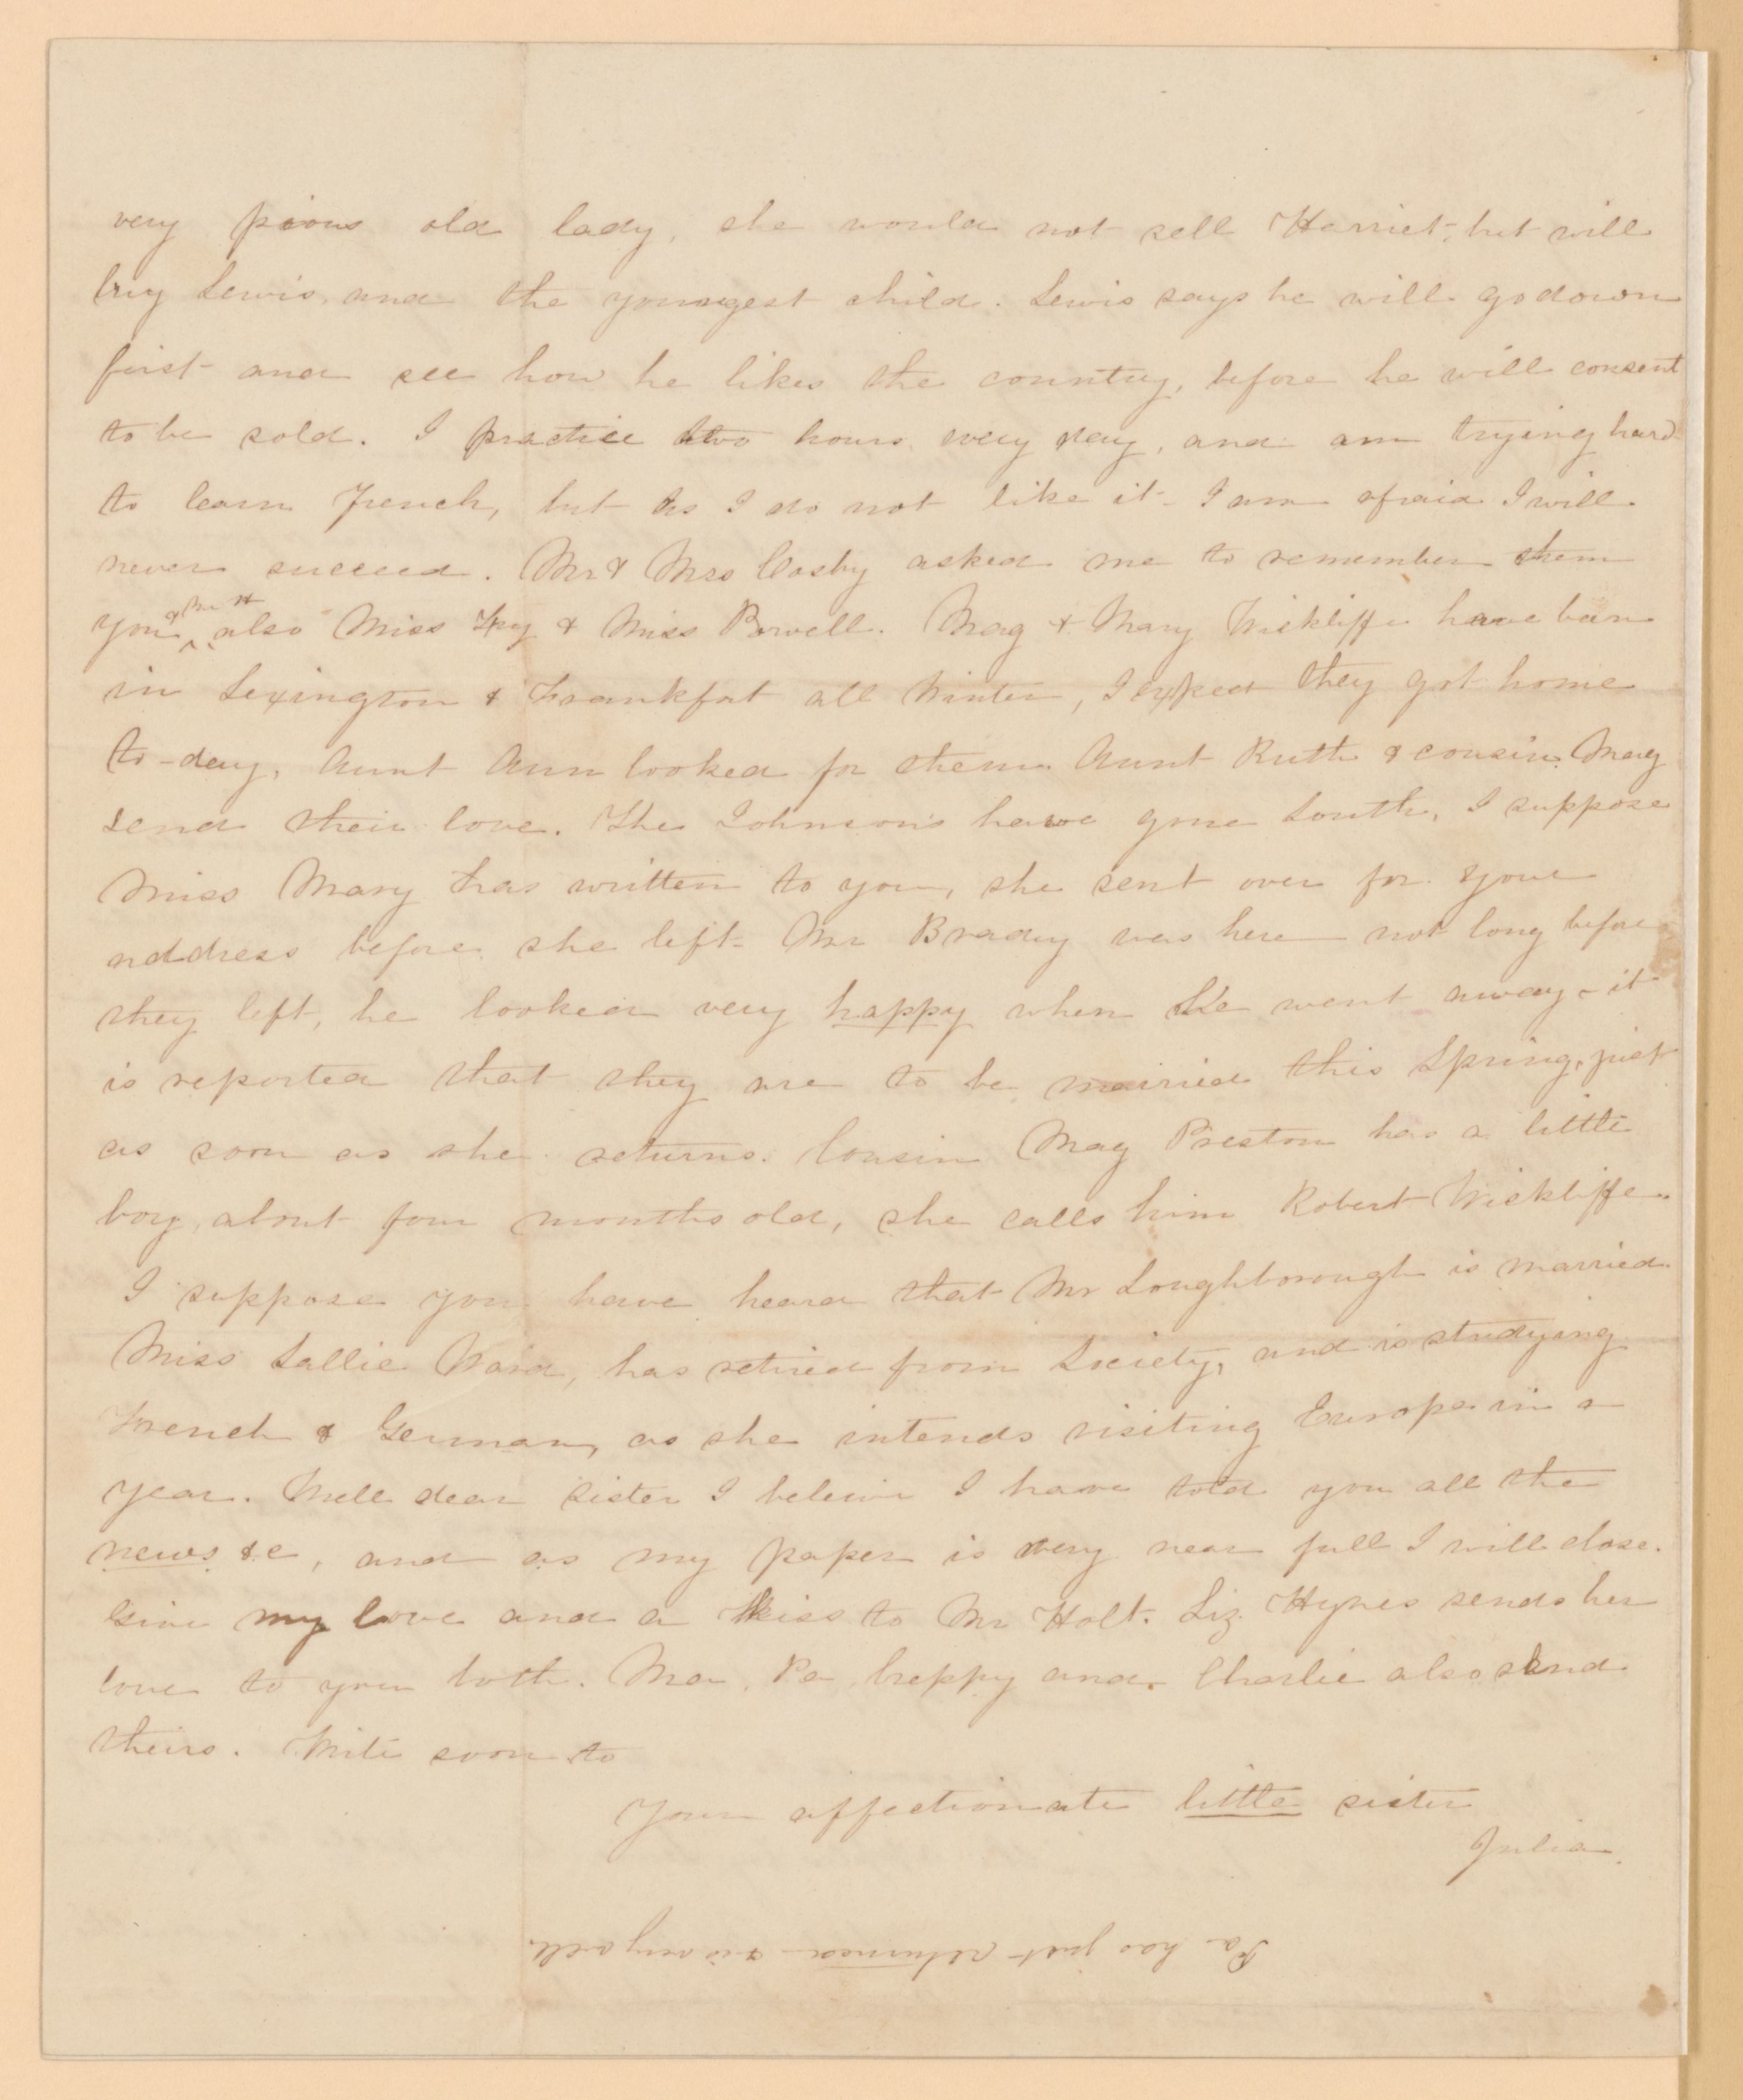 very pious old lady, she would not sell Harriet, but will
buy Lewis, and the youngest child. Lewis says he will go down
first and see how he likes the country, before he will consent
to be sold. I practice two hours every day, and am trying hard
to learn French, but as I do not like it I am afraid I will
never succeed. Mr & Mrs Cosby asked me to remember them
you & Mr H also Miss & Miss Powell. Mag & Mary Wickliffe have been
in Lexington & Frankfort all Winter, I expect they got home
to-day, Aunt Ann looked for them. Aunt Ruth & cousin Mag
send their love. The Johnson's have gone South, I suppose
Miss Mary has written to you, she sent over for your
address before she left. Mr Bradey was here not long before
they left, he looked very happy when he went away - it
is reported that they are to be married this Spring, just
as soon as she returns. Cousin Mag Preston has a little
boy, about four months old, she calls him Robert Wickliffe.
I suppose you have heard that Mr Loughborough is married.
Miss Sallie Ward, has retired from Society, and is studying
French & German, as she intends visiting Europe in a
year. Well dear sister I beleive I have told you all the
news &c, and as my paper is very near full I will close.
Give my love and a kiss to Mr Holt. Liz Hynes sends her
love to you both. Ma, Pa, and Charlie also send
theirs. Write soon to
Your affectionate little sister
Julia.
Pa has just returned & is very well.